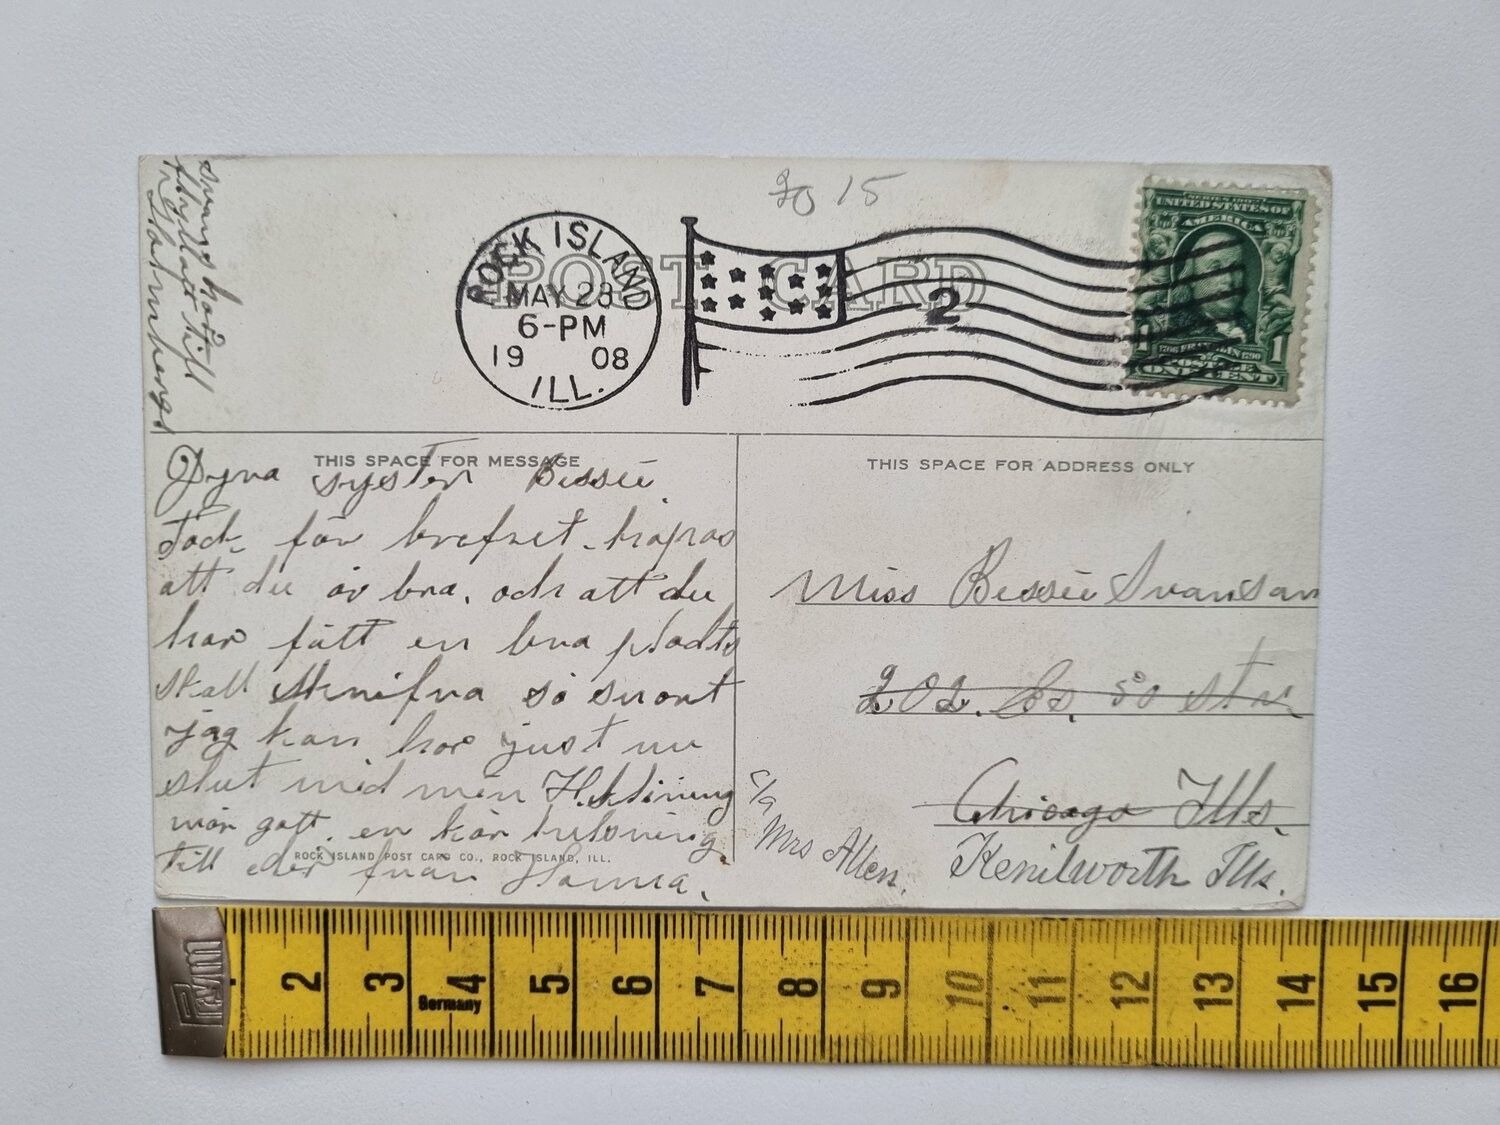 20 15
POST CARD
ROCK ISLAND
MAY 23
6-PM
19 08
ILL.
2
SERIES 1902
UNITED STATES OF
AMERICA
1706 FRANKLIN 1790
1 1
POSTAGE
ONE CENT
svara
till
THIS SPACE FOR MESSAGE
Dyra syster Bessie
Tack för brefvet. hopas
att du är bra, och att du
har fått en bra plads
skall skrifva så snart
jag kan har just nu
slut med min
mår gott. en kär helsning
till eder från Hanna.
ROCK ISLAND POST CARD CO., ROCK ISLAND, ILL.
THIS SPACE FOR ADDRESS ONLY
Miss Bessie Svanson
202. So
Chicago Ills.
c/o
Mrs Allen.
Kenilworth Ills.
Prym
2 3 4 5 6 7 8 9 10 11 12 13 14 15 16
Germany